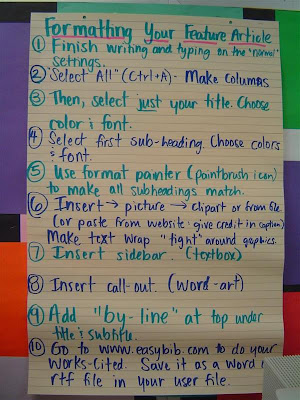 Formatting Your Feature Article
① Finish writing and typing on the "normal"
settings.
② "Select All" (Ctrl+A) - Make columns
③ Then, select just your title. Choose
color & font.
④ Select first sub-heading. Choose colors
& font.
⑤ Use format painter (paintbrush icon)
to make all subheadings match.
⑥ Insert → picture → clipart or from file
(or paste from website & give credit in caption)
Make text wrap "tight" around graphics.
⑦ Insert sidebar. (textbox)
⑧ Insert call-out. (word-art)
⑨ Add "by-line" at top under
title & subtitle.
⑩ Go to www.easybib.com to do your
works-cited. Save it as a word
rtf file in your user file.